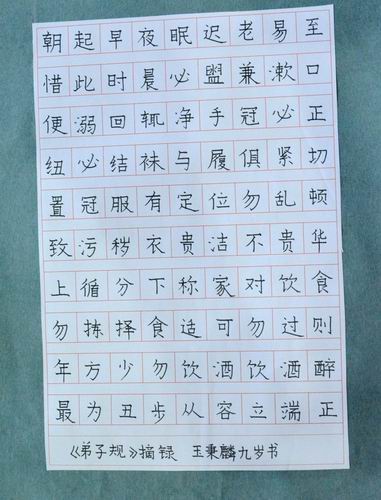 朝起早夜眠迟老易至
惜此时晨必盥兼漱口
便溺回辄净手冠必正
纽必结袜与履俱紧切
置冠服有定位勿乱顿
致污秽衣贵洁不贵华
上循分下称家对饮食
勿拣择食适可勿过则
年方少勿饮酒饮酒醉
最为丑步从容立端正
《弟子规》摘録 王秉麟九岁书